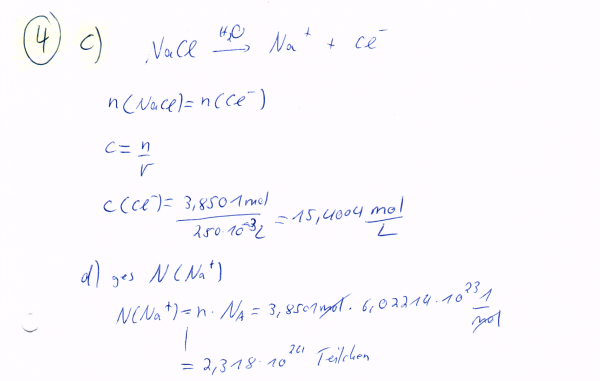 4 c) NaCl H₂O → Na⁺ + Cl⁻
n(NaCl) = n(Cl⁻)
c = n/V
c(Cl⁻) = 3,8501 mol / 250·10⁻³ L = 15,4004 mol/L
d) ges N(Na⁺)
N(Na⁺) = n · N_A = 3,8501 mol · 6,02214 · 10²³ 1/mol
= 2,318 · 10²⁴ Teilchen